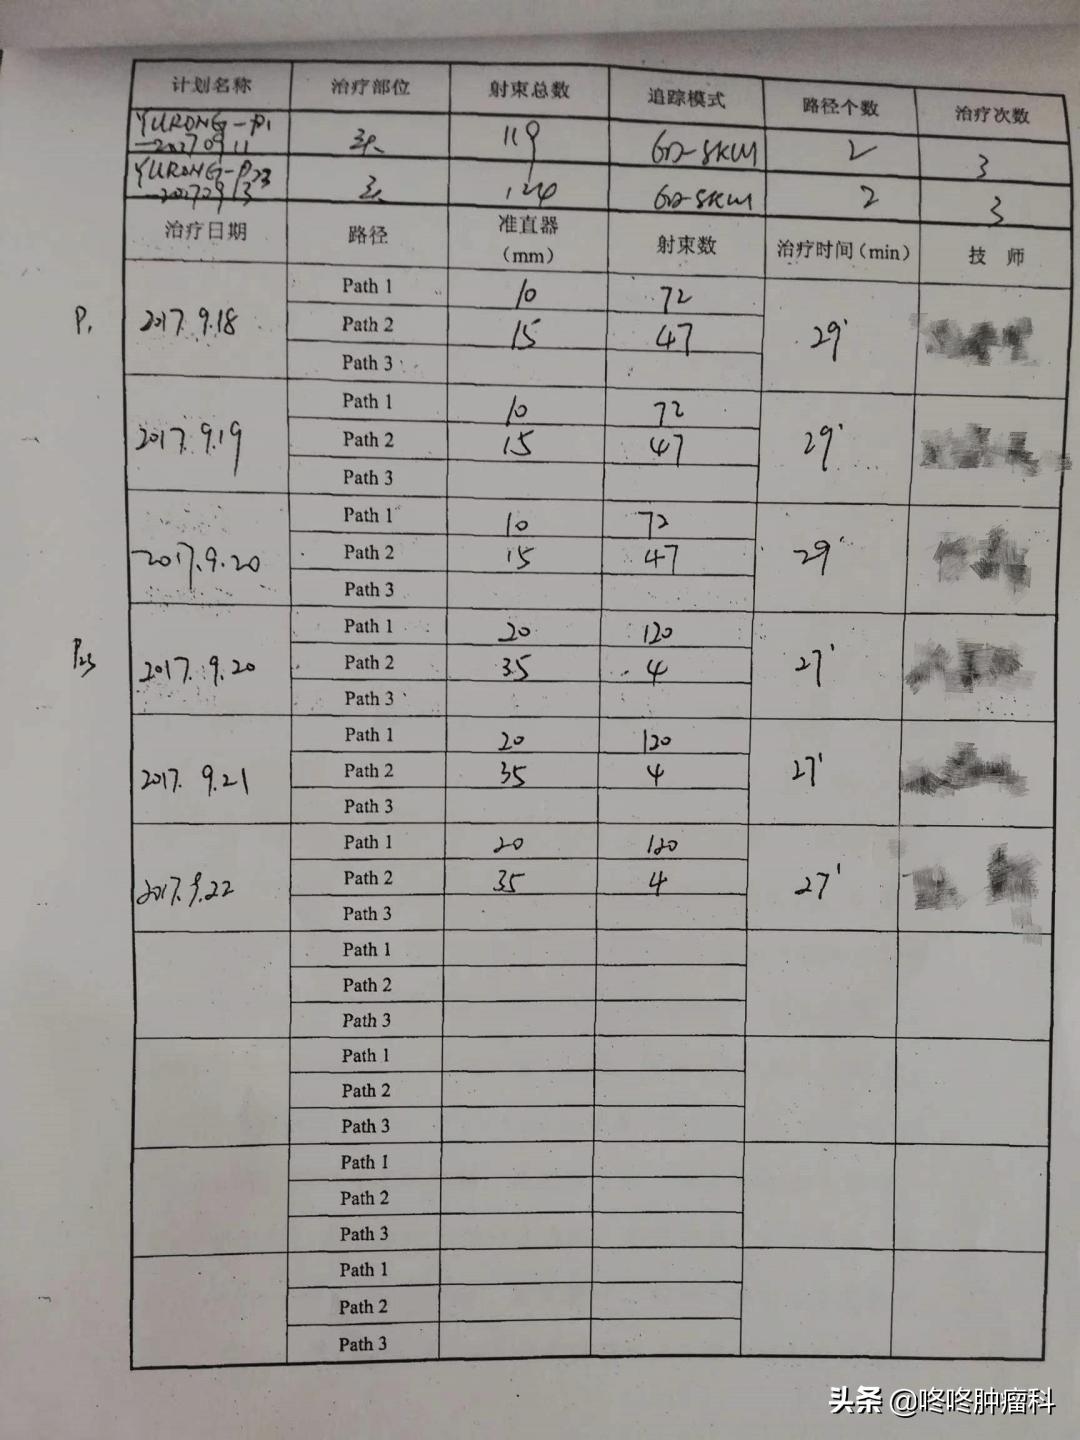 计划名称 治疗部位 射束总数 追踪模式 路径个数 治疗次数
YURONG-P1 -20170911 头 119 6D-SKULL 2 3
YURONG-P23 -20170913 头 124 6D-SKULL 2 3
治疗日期 路径 准直器 (mm) 射束数 治疗时间(min) 技 师
P1 2017.9.18 29'
Path 1 10 72
Path 2 15 47
Path 3
2017.9.19 29'
Path 1 10 72
Path 2 15 47
Path 3
2017.9.20 29'
Path 1 10 72
Path 2 15 47
Path 3
P23 2017.9.20 27'
Path 1 20 120
Path 2 35 4
Path 3
2017.9.21 27'
Path 1 20 120
Path 2 35 4
Path 3
2017.9.22 27'
Path 1 20 120
Path 2 35 4
Path 3
Path 1
Path 2
Path 3
Path 1
Path 2
Path 3
Path 1
Path 2
Path 3
Path 1
Path 2
Path 3
头条 @咚咚肿瘤科